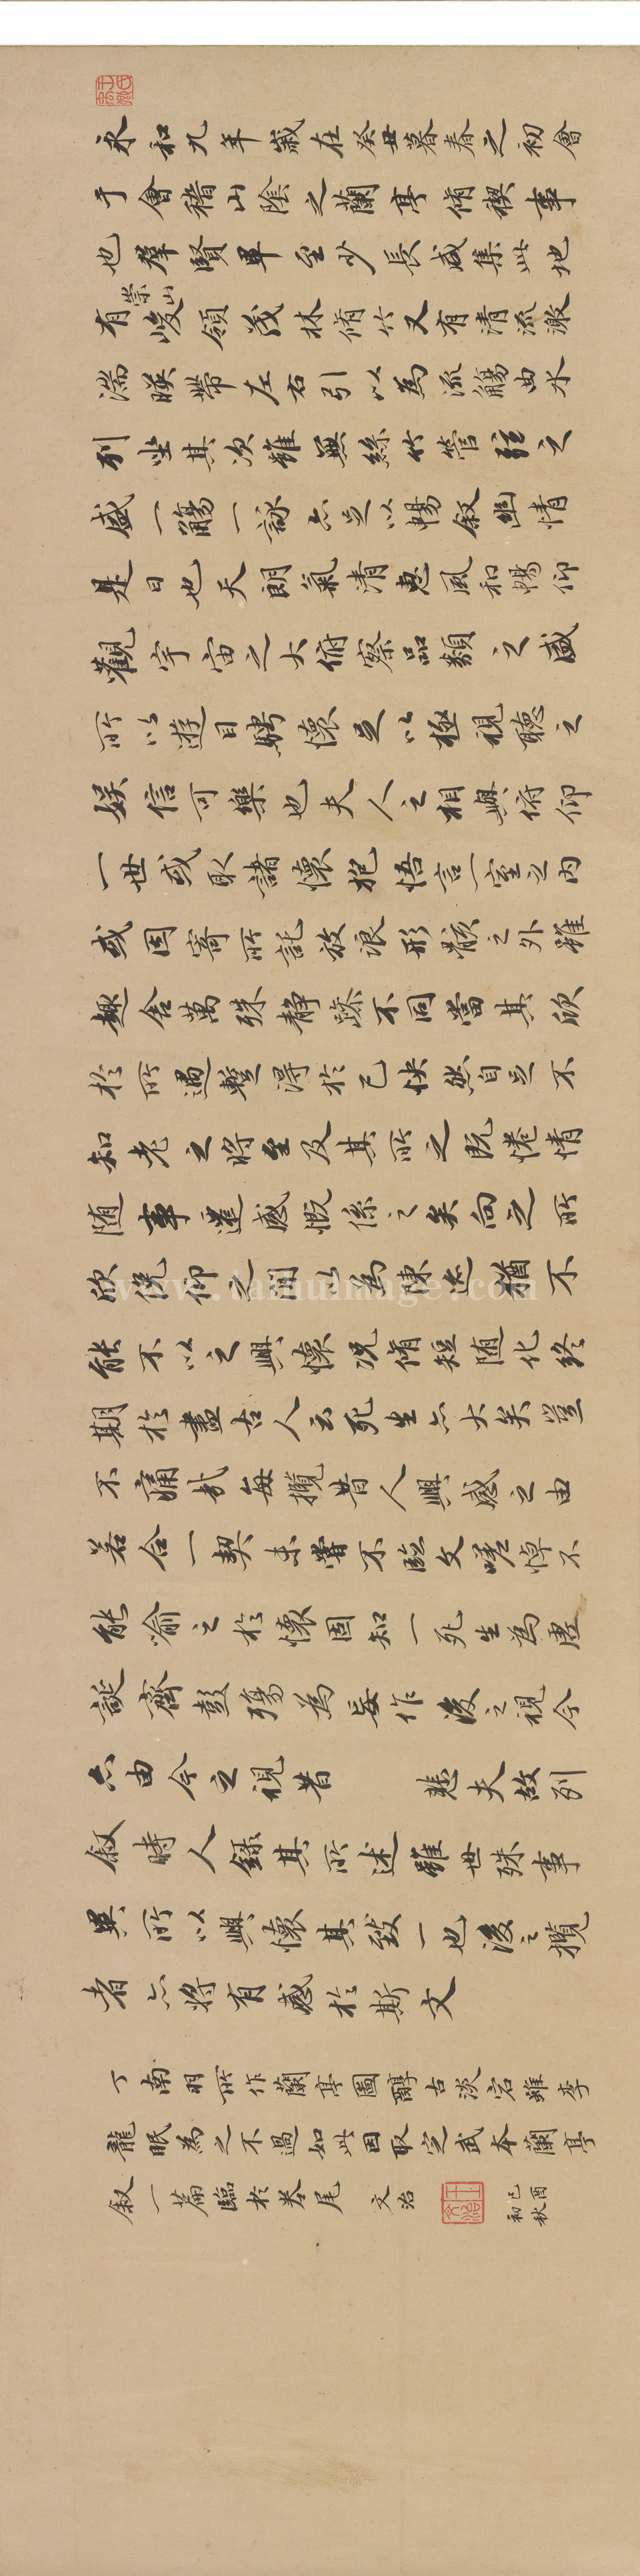 永和九年歲在癸丑暮春之初會
于會稽山陰之蘭亭脩禊事
也群賢畢至少長咸集此地
有崇山峻領茂林脩竹又有清流激
湍暎帶左右引以為流觴曲水
列坐其次雖無絲竹管弦之
盛一觴一詠亦足以暢敘幽情
是日也天朗氣清惠風和暢仰
觀宇宙之大俯察品類之盛
所以遊目騁懷足以極視聽之
娛信可樂也夫人之相與俯仰
一世或取諸懷抱悟言一室之內
或因寄所託放浪形骸之外雖
趣舍萬殊靜躁不同當其欣
於所遇暫得於己快然自足不
知老之將至及其所之既惓情
隨事遷感慨係之矣向之所
欣俛仰之間以為陳迹猶不
能不以之興懷況脩短隨化終
期於盡古人云死生亦大矣豈
不痛哉每攬昔人興感之由
若合一契未嘗不臨文嗟悼不
能喻之於懷固知一死生為虛
誕齊彭殤為妄作後之視今
亦由今之視昔 悲夫故列
敘時人錄其所述雖世殊事
異所以興懷其致一也後之攬
者亦將有感於斯文
丁南羽所作蘭亭圖醇古淡宕雖李
龍眠為之不過如此因取定武本蘭亭
敘一篇臨於卷尾 文治
己酉
初秋